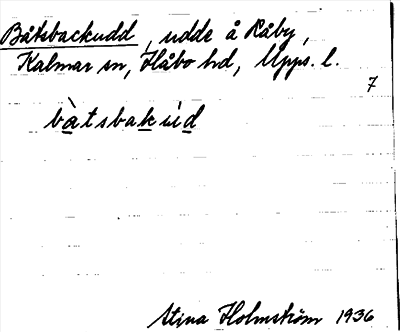 Båtsbackudd, udde å Råby,
Kalmar sn, Håbo hd, Upps. l.
7
bàtsbakúd
Stina Holmström 1936